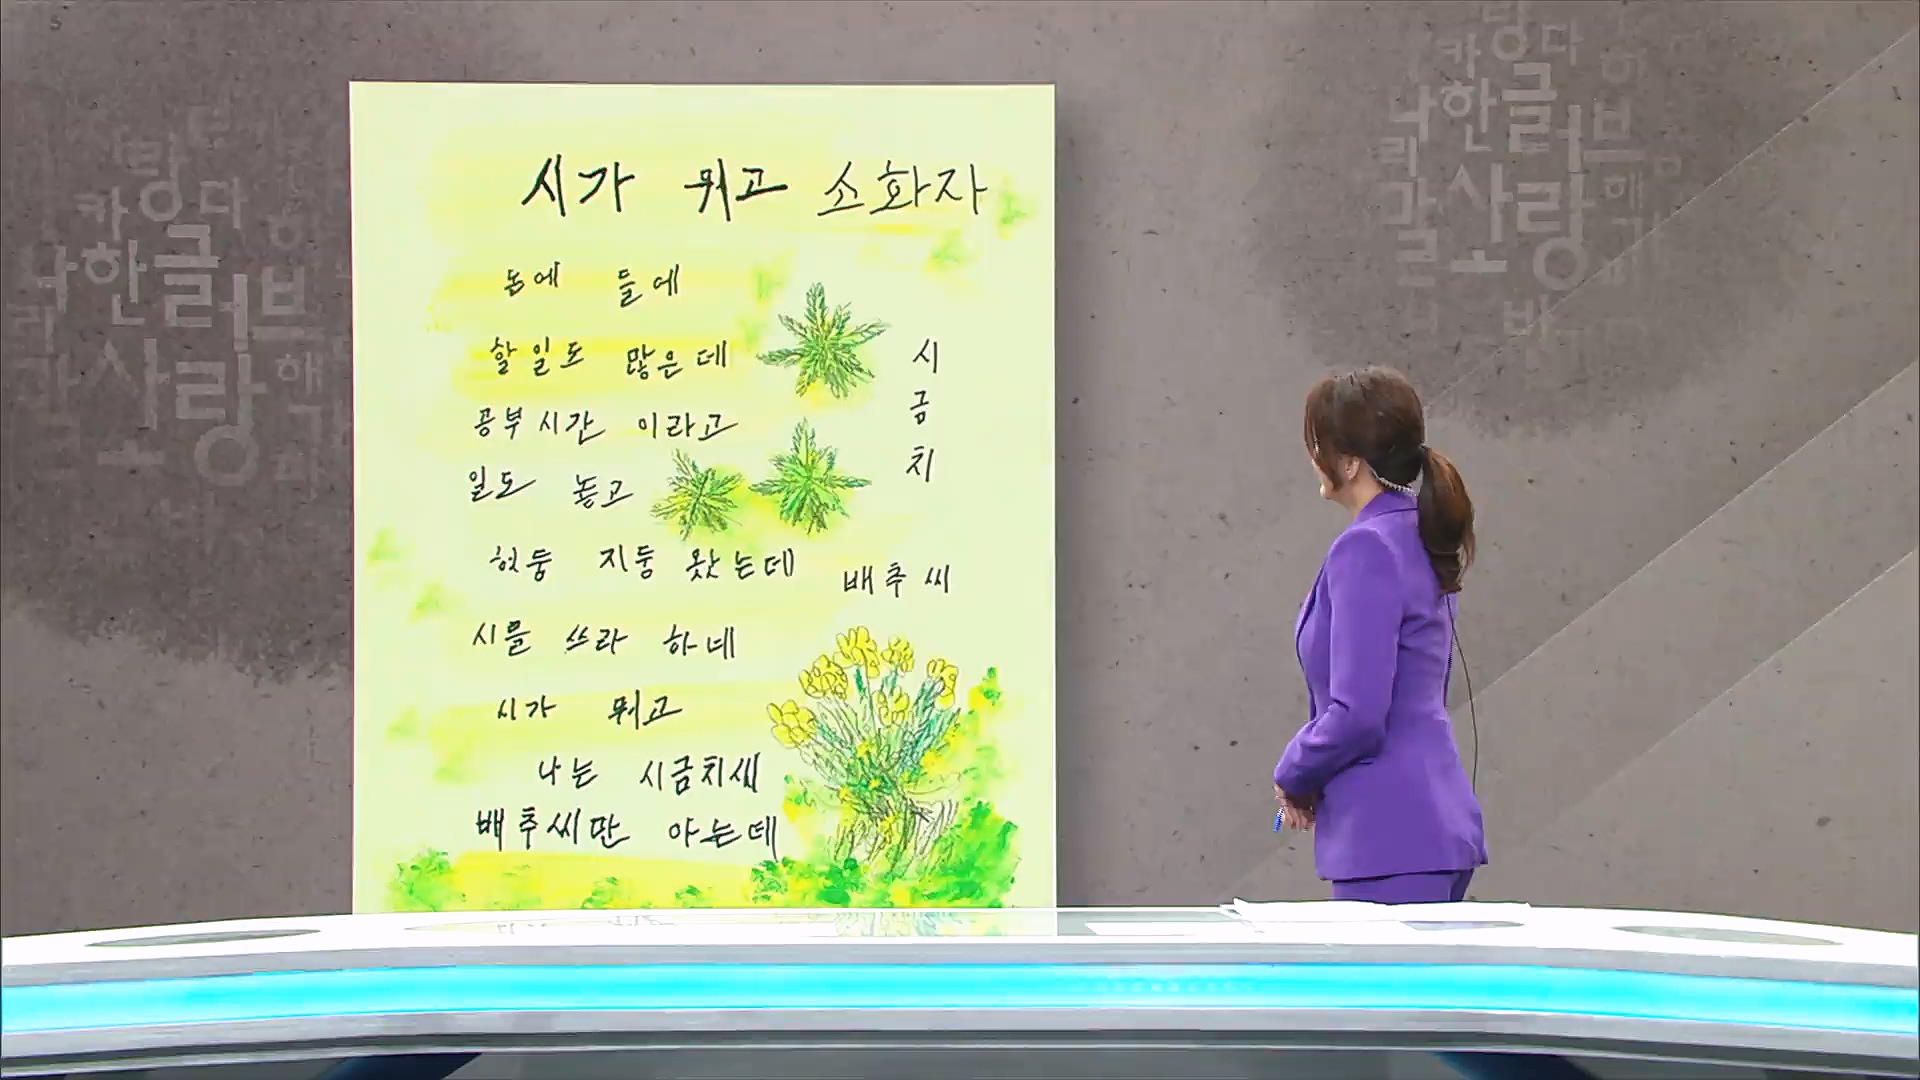 시가 뭐고 소화자
논에 들에
할일도 많은데
공부시간 이라고
일도 놓고
헛둥 지둥 왔는데
시를 쓰라 하네
시가 뭐고
나는 시금치씨
배추씨만 아는데
시금치
배추씨
한글
러브
사랑
해
한글
러브
사랑
해